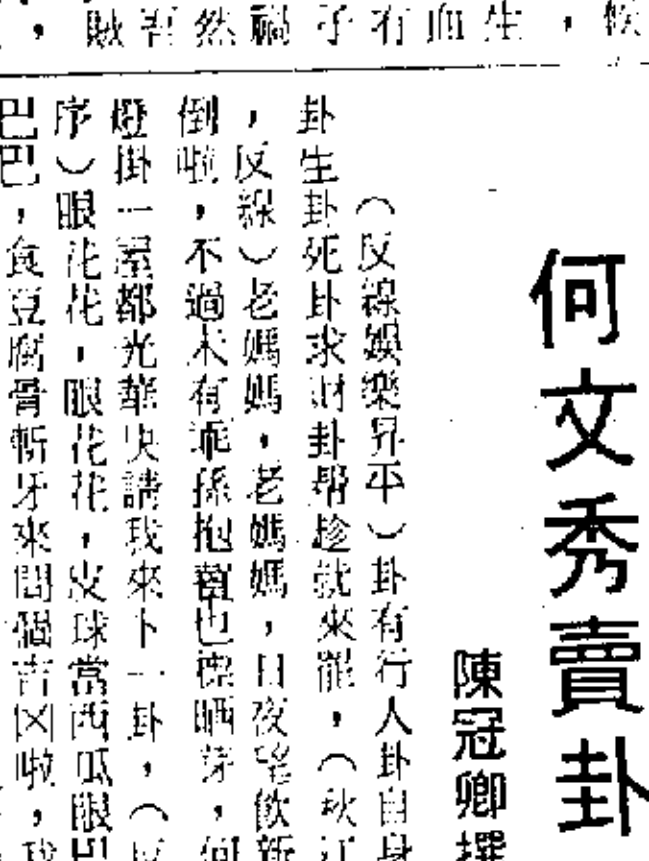 何文秀賣卦
陳冠卿撰
（反線娛樂昇平）卦有行人卦自身
卦生卦死卦求財卦帮趁就來罷，（秋江
，反線）老媽媽，老媽媽，日夜望飲新
倒啦，不過未有乖孫抱，也晒芽，何
燈掛一屋都光華快請我來卜一卦，（反
序）眼花花，眼花花，皮球當西瓜眼巴
巴巴，食豆腐骨斬牙來問個吉凶啦，我
，賊若然禍子有血生，